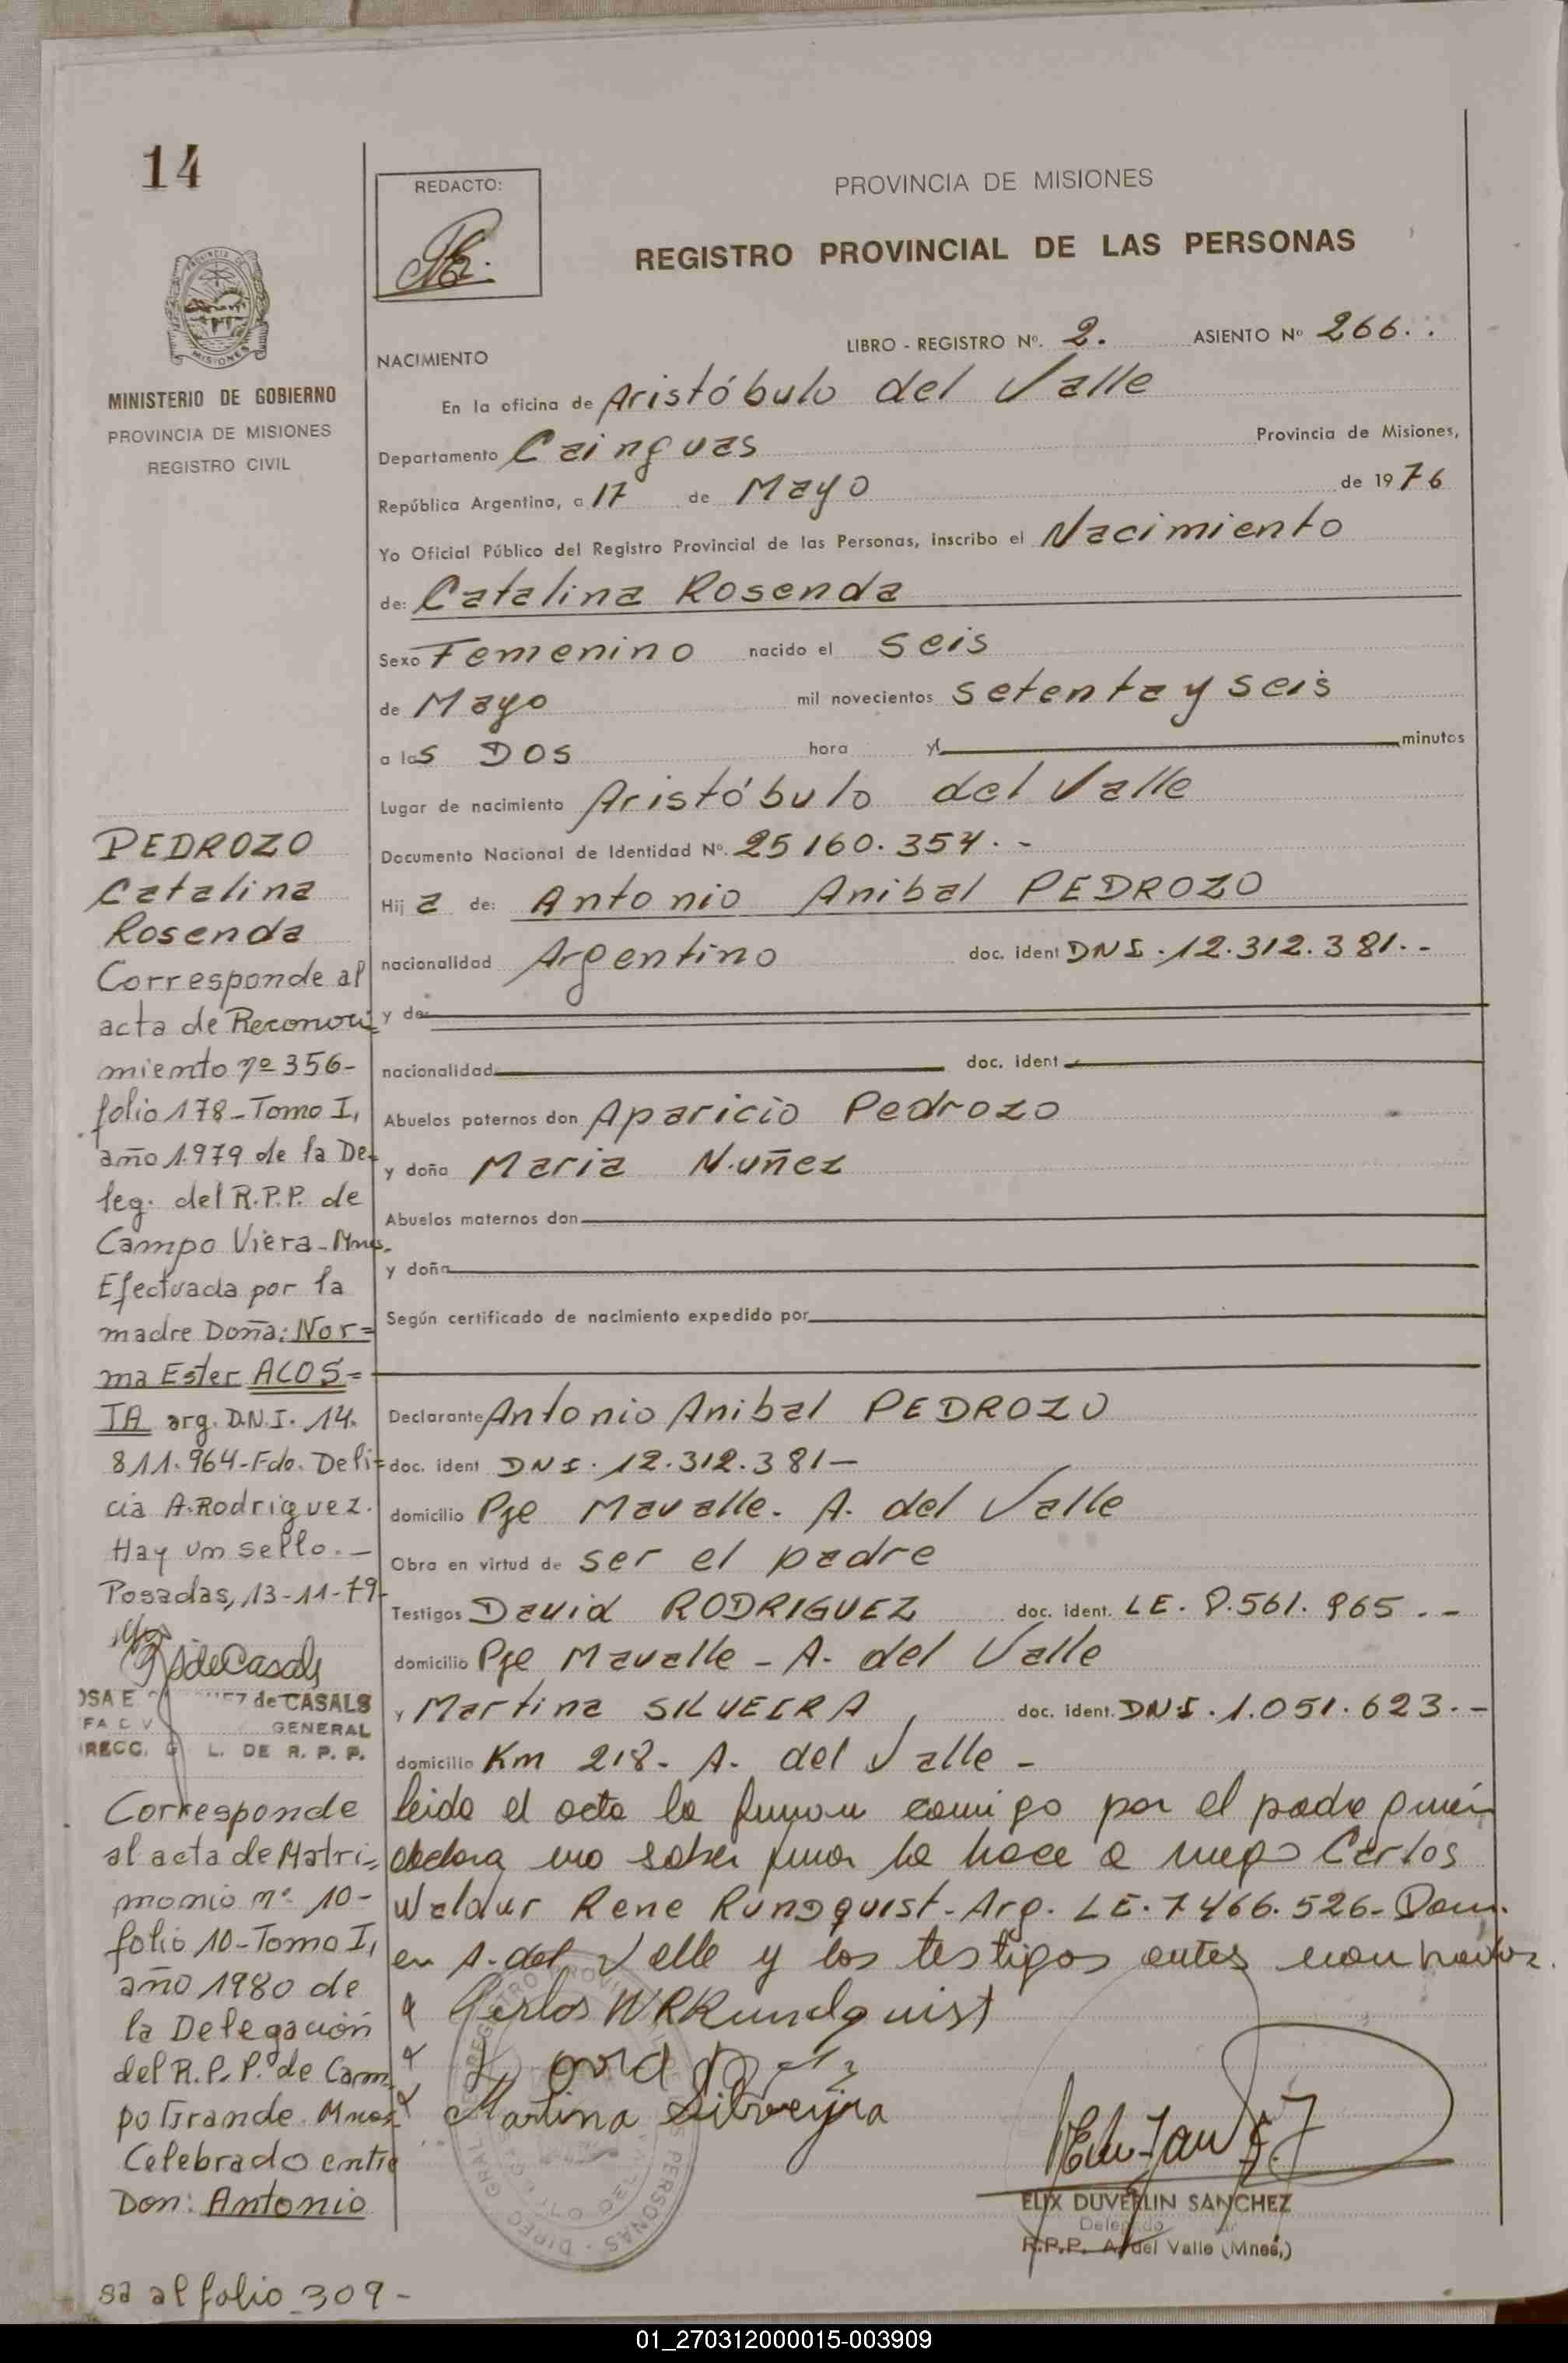 14
REDACTO:
PROVINCIA DE MISIONES
REGISTRO PROVINCIAL DE LAS PERSONAS
PROVINCIA DE
MISIONES
MINISTERIO DE GOBIERNO
PROVINCIA DE MISIONES
REGISTRO CIVIL
LIBRO - REGISTRO Nº. 2. ASIENTO Nº 266..
NACIMIENTO
En la oficina de Aristóbulo del Valle
Departamento Cainguas Provincia de Misiones,
República Argentina, a 17 de Mayo de 1976
Yo Oficial Público del Registro Provincial de las Personas, inscribo el Nacimiento
de: Catalina Rosenda
Sexo Femenino nacido el seis
de Mayo mil novecientos setenta y seis
a las DOS hora y minutos
Lugar de nacimiento Aristóbulo del Valle
Documento Nacional de Identidad Nº. 25160.354.-
Hija de: Antonio Anibal PEDROZO
nacionalidad Argentino doc. ident DNI. 12.312.381.-
y de:
nacionalidad doc. ident
Abuelos paternos don Aparicio Pedrozo
y doña Maria Nuñez
Abuelos maternos don
y doña
Según certificado de nacimiento expedido por
Declarante Antonio Anibal PEDROZO
doc. ident DNI. 12.312.381-
domicilio Pje Mavalle. A. del Valle
Obra en virtud de ser el padre
Testigos David RODRIGUEZ doc. ident. LE. 8.561.965.-
domicilio Pje Mavalle - A. del Valle
y Martina SILVEIRA doc. ident. DNI. 1.051.623.-
domicilio Km 218- A. del Valle -
leida el acta la firman comigo por el padre quién
declara no saber firmar lo hace a ruego Carlos
Waldur Rene RUNDQUIST- Arg. LE. 7.466.526- Dom.
en A. del Valle y los testigos antes nombrados.
Carlos W R Rundquist
Martina Silveyra
ELIX DUVERLIN SANCHEZ
Delegado
R.P.P. A. del Valle (Mnes.)
PEDROZO
Catalina
Rosenda
Corresponde al
acta de Reconoci=
miento nº 356-
folio 178-Tomo I,
año 1.979 de la De=
leg. del R.P.P. de
Campo Viera-Mnes.
Efectuada por la
madre Doña: Nor=
ma Ester ACOS=
TA arg. D.N.I. 14.
811.964-Fdo. Deli=
cia A. Rodriguez.
Hay un sello.-
Posadas, 13-11-79-
de CASALS
GENERAL
L. DE R. P. P.
Corresponde
al acta de Matri=
monio nº 10-
folio 10-Tomo I,
año 1980 de
la Delegación
del R.P.P. de Cam=
po Grande. Mnes.
Celebrado entre
Don: Antonio
sa al folio 309-
01_270312000015-003909